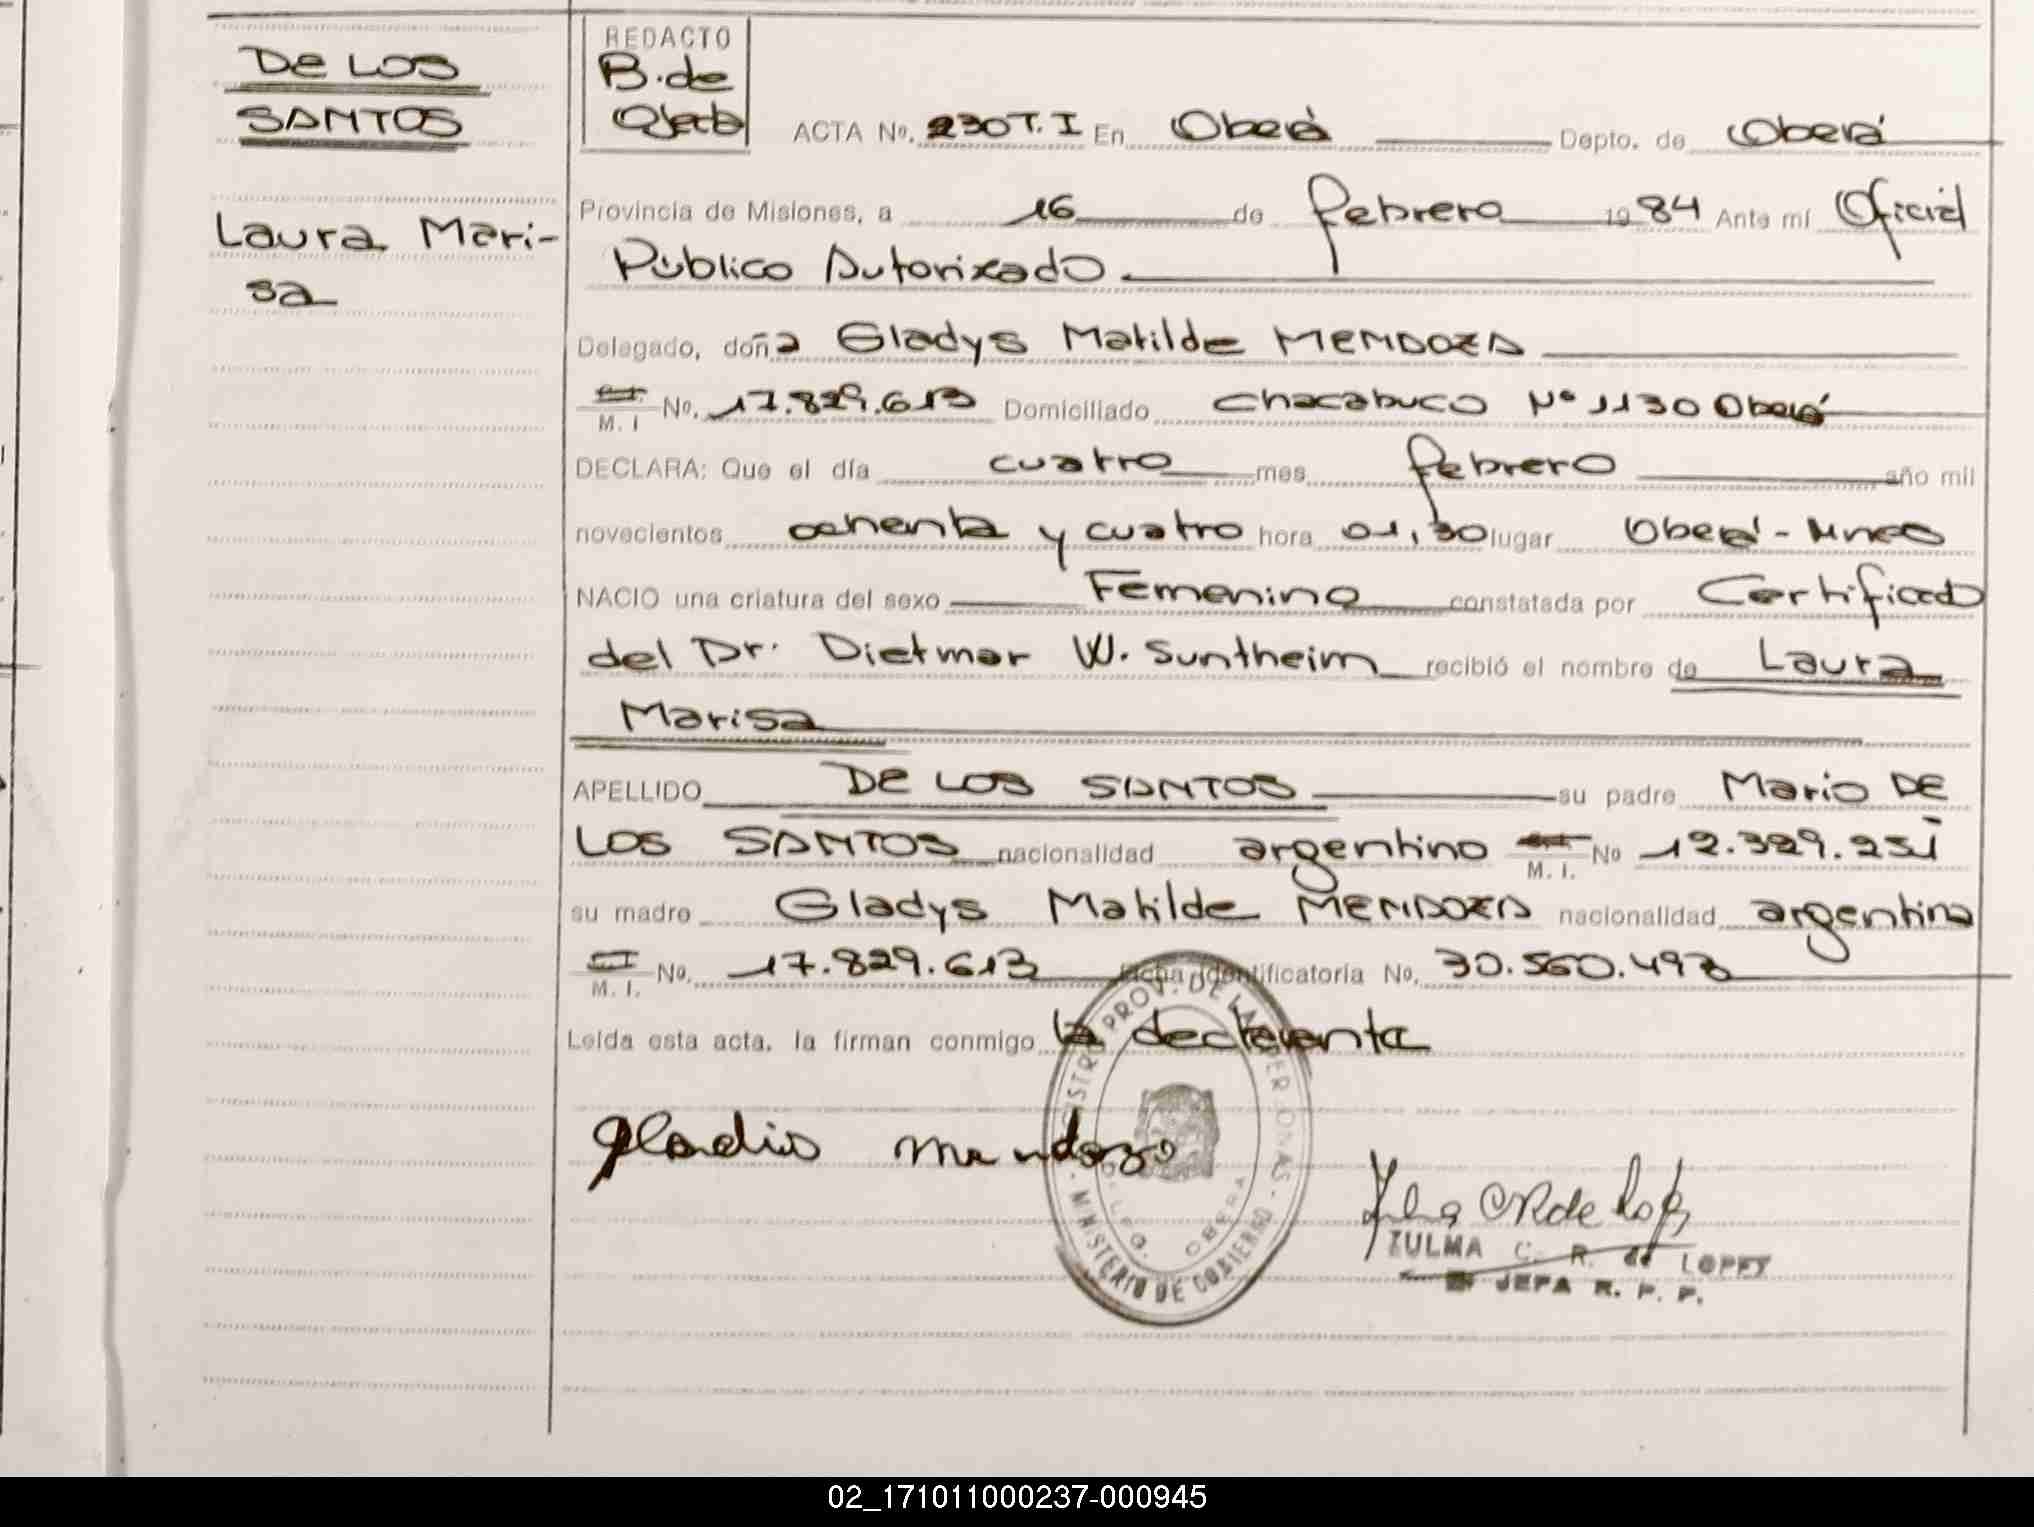 DE LOS
SANTOS
Laura Mari-
sa
REDACTO
B. de
Ojeda
ACTA No. 230 T. I En Oberá Depto. de Oberá
Provincia de Misiones, a 16 de febrero 1984 Ante mí Oficial
Público Autorizado
Delegado, doña Gladys Matilde MENDOZA
M. I No. 17.829.613 Domiciliado Chacabuco Nº 1130 Oberá
DECLARA: Que el día cuatro mes febrero año mil
novecientos ochenta y cuatro hora 01,30 lugar Oberá - Mnes
NACIO una criatura del sexo Femenino constatada por Certificado
del Dr. Dietmar W. Suntheim recibió el nombre de Laura
Marisa
APELLIDO DE LOS SANTOS su padre Mario DE
LOS SANTOS nacionalidad argentino M. I. No 12.329.251
su madre Gladys Matilde MENDOZA nacionalidad argentina
M. I. No. 17.829.613 Ficha Identificatoria No. 30.560.493
Leída esta acta, la firman conmigo la declaranta
Mendozo
REGISTRO PROV. DE LAS PERSONAS - MINISTERIO DE GOBIERNO -
DELEG. OBERA
ZULMA C. R. de LOPEZ
JEFA R. P. P.
02_171011000237-000945